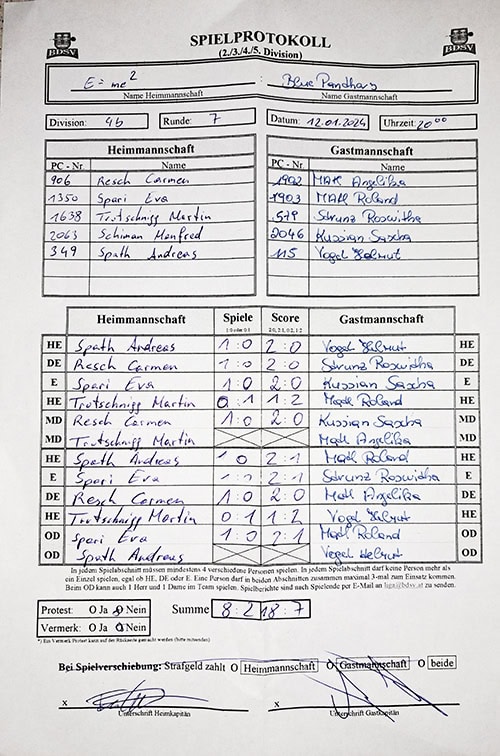 SPIELPROTOKOLL
BDSV (2./3./4./5. Division) BDSV
E=mc² : Blue Pandhas
Name Heimmannschaft Name Gastmannschaft
Division: 4b Runde: 7 Datum: 12.01.2024 Uhrzeit: 20 00
Heimmannschaft Gastmannschaft
PC - Nr Name PC - Nr Name
906 Resch Carmen 1902 Matl Angelika
1350 Spari Eva 1903 Matl Roland
1638 Trotschnigg Martin 579 Strunz Roswitha
2063 Schiman Manfred 2046 Kussian Sascha
349 Spath Andreas 115 Vogel Helmut
Heimmannschaft Spiele Score Gastmannschaft
1:0 oder 0:1 2:0, 2:1, 0:2, 1:2
HE Spath Andreas 1:0 2:0 Vogel Helmut HE
DE Resch Carmen 1:0 2:0 Strunz Roswitha DE
E Spari Eva 1:0 2:0 Kussian Sascha E
HE Trotschnigg Martin 0:1 1:2 Matl Roland HE
MD Resch Carmen 1:0 2:0 Kussian Sascha MD
MD Trotschnigg Martin Matl Angelika MD
HE Spath Andreas 1:0 2:1 Matl Roland HE
E Spari Eva 2:1 Strunz Roswitha E
DE Resch Carmen 1:0 2:0 Matl Angelika DE
HE Trotschnigg Martin 0:1 1:2 Vogel Helmut HE
OD Spari Eva 1:0 2:1 Matl Roland OD
OD Spath Andreas Vogel Helmut OD
In jedem Spielabschnitt müssen mindestens 4 verschiedene Personen spielen. In jedem Spielabschnitt darf keine Person mehr als
ein Einzel spielen, egal ob HE, DE oder E. Eine Person darf in beiden Abschnitten zusammen maximal 3-mal zum Einsatz kommen.
Beim OD kann auch 1 Herr und 1 Dame im Team spielen. Spielberichte sind nach Spielende per E-Mail an liga@bdsv.at zu senden!
Protest: O Ja O Nein Summe 8:2 18:7
Vermerk: O Ja O Nein
*) Ein Vermerk Protest kann auf der Rückseite gemacht werden (bitte ankreuzen)
Bei Spielverschiebung: Strafgeld zahlt O Heimmannschaft O Gastmannschaft O beide
x x
Unterschrift Heimkapitän Unterschrift Gastkapitän